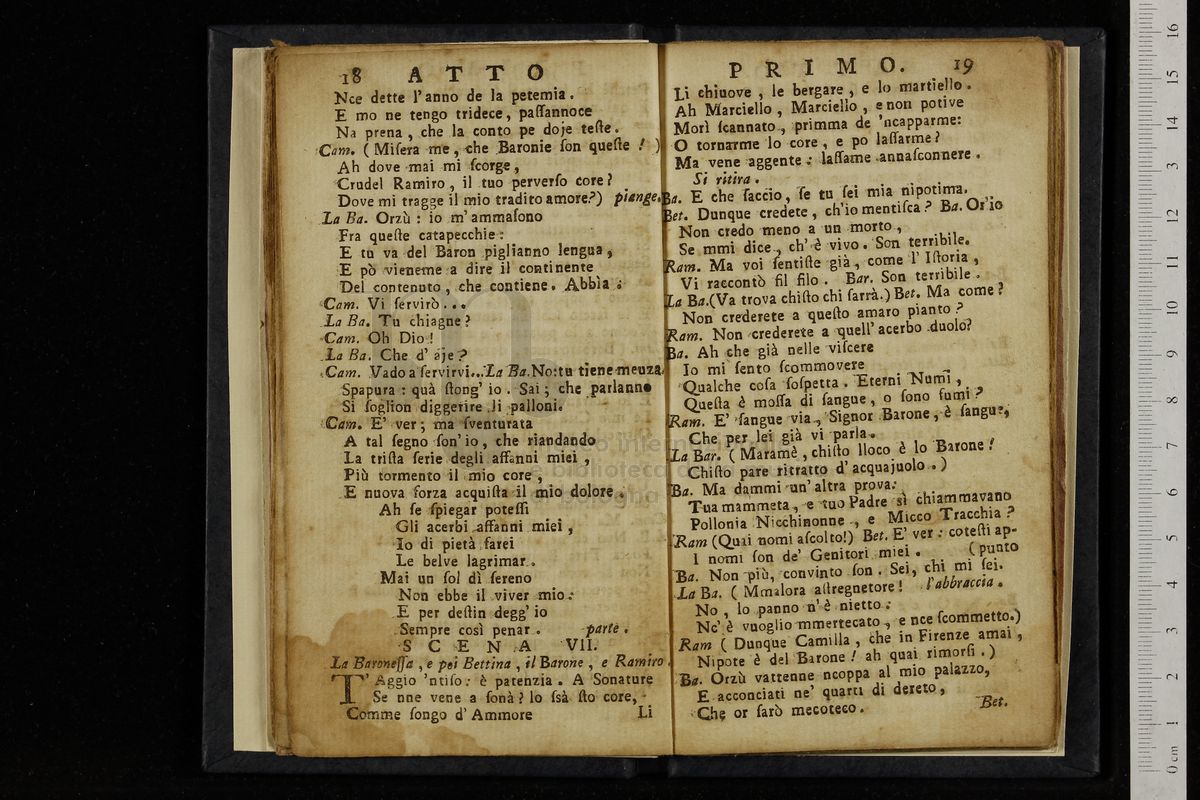 18 ATTO
Nce dette l'anno de la petemia.
E mo ne tengo tridece, paſſannoce
Na prena, che la conto pe doje teſte.
Cam. (Miſera me, che Baronie ſon queſte!)
Ah dove mai mi ſcorge,
Crudel Ramiro, il tuo perverſo core?
Dove mi tragge il mio tradito amore?) piange.
La Ba. Orzù: io m'ammaſono
Fra queſte catapecchie:
E tu va del Baron piglianno lengua,
E pò vieneme a dire il continente
Del contenuto, che contiene. Abbìa:
Cam. Vi ſervirò...
La Ba. Tu chiagne?
Cam. Oh Dio!
La Ba. Che d'aje?
Cam. Vado a ſervirvi... La Ba. No: tu tiene meuza.
Spapura: quà ſtong'io. Sai; che parlanno
Si ſoglion diggerire li palloni.
Cam. E' ver; ma ſventurata
A tal ſegno ſon'io, che riandando
La triſta ſerie degli affanni miei,
Più tormento il mio core,
E nuova forza acquiſta il mio dolore.
Ah ſe ſpiegar poteſſi
Gli acerbi affanni miei,
Io di pietà farei
Le belve lagrimar.
Mai un ſol dì ſereno
Non ebbe il viver mio:
E per deſtin degg'io
Sempre così penar. parte.
SCENA VII.
La Baroneſſa, e poi Bettina, il Barone, e Ramiro.
T'Aggio 'ntiſo: è patenzia. A Sonature
Se nne vene a ſonà? lo ſsà ſto core,
Comme ſongo d'Ammore
Li
PRIMO. 19
Li chiuove, le bergare, e lo martiello.
Ah Marciello, Marciello, e non potive
Morì ſcannato, primma de 'ncapparme:
O tornarme lo core, e po laſſarme?
Ma vene aggente: laſſame annaſconnere.
Si ritira.
Ba. E che faccio, ſe tu ſei mia nipotima.
Bet. Dunque credete, ch'io mentiſca? Ba. Or io
Non credo meno a un morto,
Se mmi dice, ch'è vivo. Son terribile.
Ram. Ma voi ſentiſte già, come l'Iſtoria,
Vi raccontò fil filo. Bar. Son terribile.
La Ba. (Va trova chiſto chi ſarrà.) Bet. Ma come?
Non crederete a queſto amaro pianto?
Ram. Non crederete a quell'acerbo duolo?
Ba. Ah che già nelle viſcere
Io mi ſento ſcommovere
Qualche coſa ſoſpetta. Eterni Numi,
Queſta è moſſa di ſangue, o ſono fumi?
Ram. E' ſangue via, Signor Barone, è ſangue,
Che per lei già vi parla.
La Bar. (Maramè, chiſto lloco è lo Barone!
Chiſto pare ritratto d'acquajuolo.)
Ba. Ma dammi un'altra prova:
Tua mammeta, e tuo Padre sì chiammavano
Pollonia Nicchinonne, e Micco Tracchia?
Ram (Quai nomi aſcolto!) Bet. E' ver: coteſti ap-
I nomi ſon de' Genitori miei. (punto
Ba. Non più, convinto ſon. Sei, chi mi ſei.
La Ba. (Mmalora aſtregnetore! l'abbraccia.
No, lo panno n'è nietto:
Nc'è vuoglio mmertecato, e nce ſcommetto.)
Ram (Dunque Camilla, che in Firenze amai,
Nipote è del Barone! ah quai rimorſi.)
Ba. Orzù vattenne ncoppa al mio palazzo,
E acconciati ne' quarti di dereto,
Che or ſarò mecoteco.
Bet.